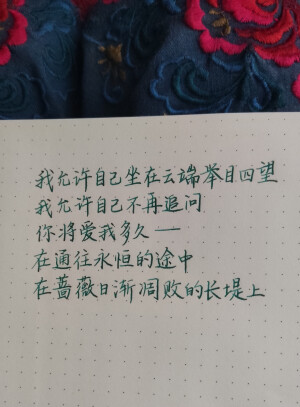 我允许自己坐在云端举目四望
我允许自己不再追问
你将爱我多久一
在通往永恒的途中
在蔷薇日渐凋败的长堤上